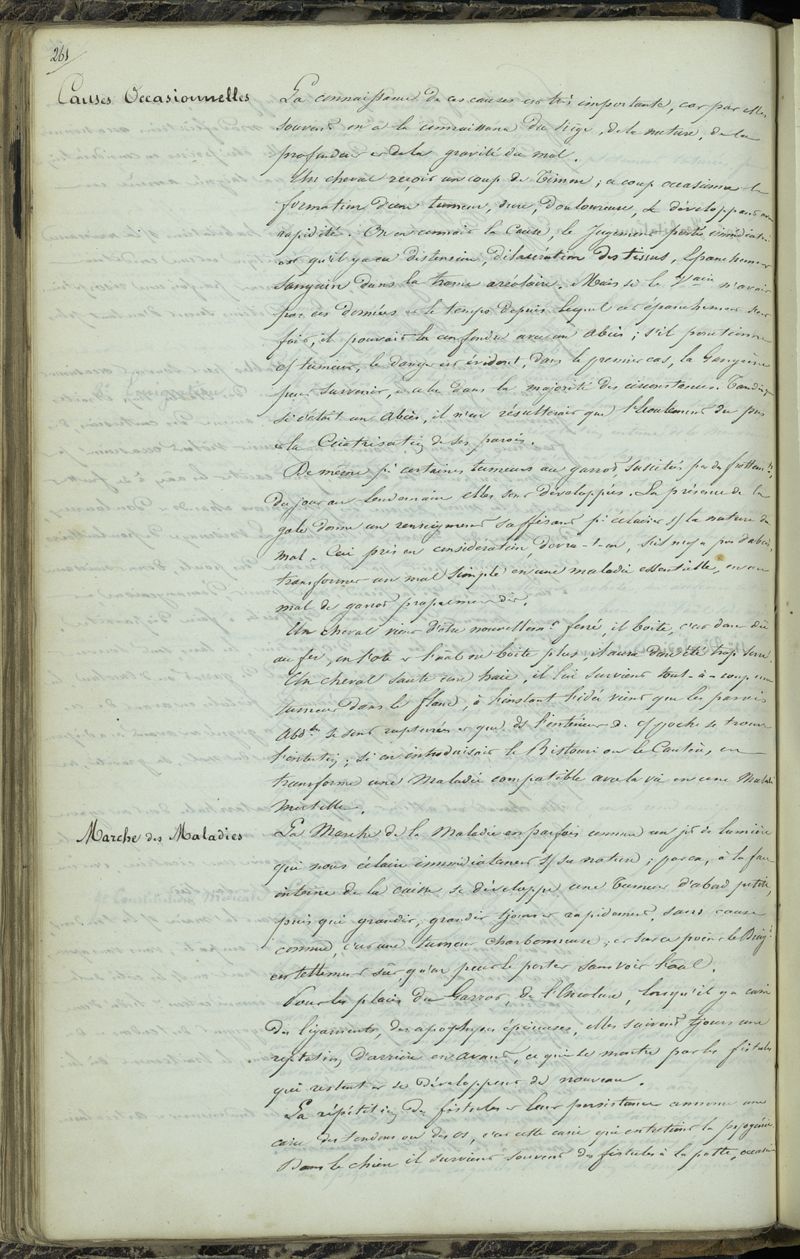 261
Causes Occasionnelles
La connaissance de ces causes est très importante, car par elles
souvent on a la connaissance du siège, de la nature, de la
profondeur et de la gravité du mal.
Un cheval reçoit un coup de Timon ; ce coup occasionne la
formation d'une tumeur, dure, douloureuse, se développant avec
rapidité. On en connait la Cause, le Jugement porté immédiatem
est qu'il y a eu distension, dilacération des tissus, Epanchement
sanguin dans la trame aréolaire. Mais si le n'avait
pas ces données et le temps depuis lequel cet épanchement s'est
fait, il pourrait le confondre avec un abcès ; s'il ponctionne
cette tumeur, le danger est évident, dans le premier cas, la Gangrène
peut survenir, et cela dans la majorité des circonstances. Tandis que
si c'était un Abcès, il n'en résulterait que l'écoulement du pus
et la Cicatrisation de ses parois.
De même pr certaines tumeurs au garrot, suscitées par des frottemts
du jour au lendemain elles sont développées. La présence de la
gale donne un renseignement suffisant pr éclairer s/ la nature du
mal. Ceci pris en considération, devra-t-on, s'il n'y a pas d'abcès,
transformer un mal simple en une maladie essentielle, en un
mal de garrot proprement dit.
Un cheval vient d'être nouvellemt ferré, il boite, c'est donc dû
au fer, on l'ôte et l'anal ne boite plus, il aura donc été trop serré.
Un cheval saute une haie, il lui survient tout-à-coup une
tumeur dans le flanc, à l'instant l'idée vient que les parois
Abdles se sont rupturées et que ds l'intérieur de cette poche se trouve
l'intestin ; si on introduisait le Bistouri ou le Cautère, on
transforme une Maladie compatible avec la vie en une Maladie
Mortelle.
Marche des Maladies
La Marche de la Maladie est parfois comme un jet de lumière
qui nous éclaire immédiatement s/ sa nature ; par ex, à la face
interne de la cuisse se développe une Tumeur d'abord petite,
puis qui grandit, grandit tjours et rapidement, sans cause
connue, c'est une tumeur charbonneuse ; et sur ce point le Diagc
est tellement sûr qu'on peut le porter sans voir l'anal.
Pour les plaies du Garrot, de l'Encolure, lorsqu'il y a carie
des ligaments, des apophyses épineuses, elles suivent tjours une
d'arrière en avant, ce que le montre par les fistules
qui restent et se développent de nouveau.
La répétition des fistules et leur persistance annonce une
carie des tendons ou des os, c'est cette carie qui entretient la pyogénie.
Dans le chien il survient souvent des fistules à la patte,